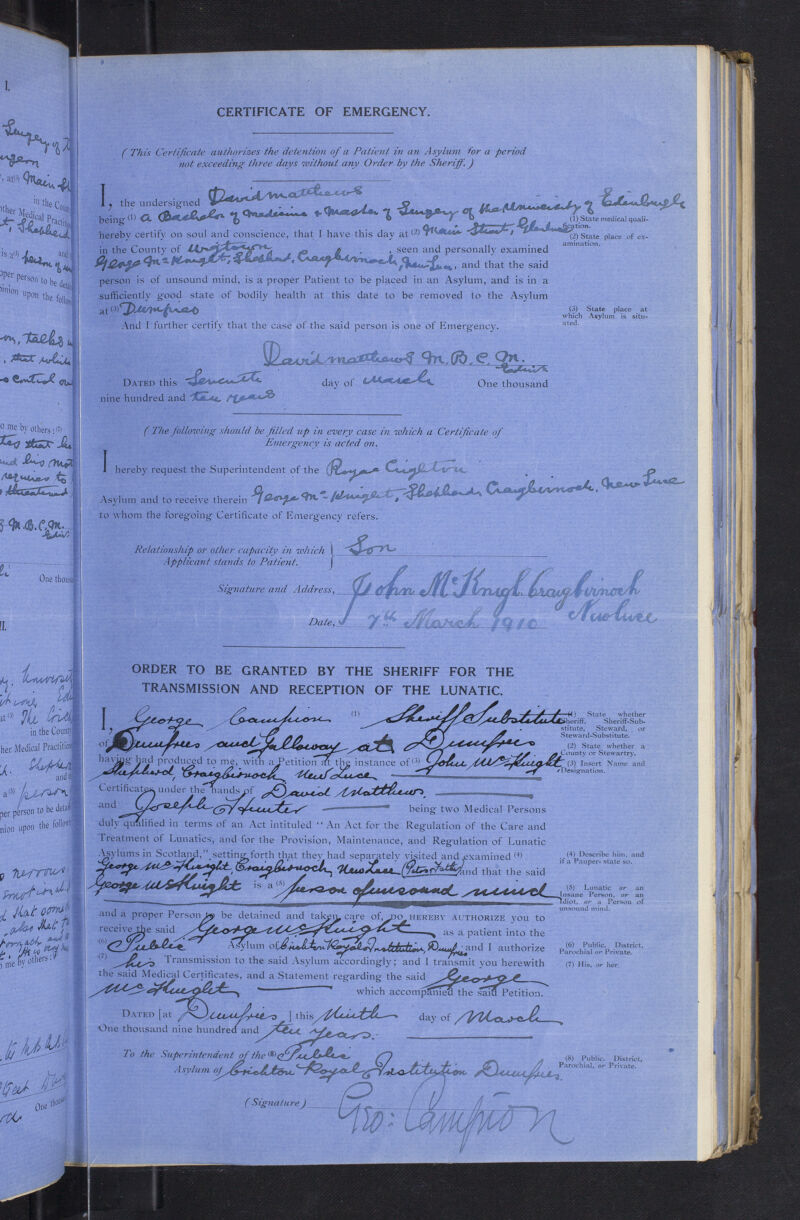 CERTIFICATE OF EMERGENCY.
(This Certificate authorizes the detention of a Patient in an Asylum for a period
not exceeding three days without any Order by the Sheriff.)
I, the undersigned David Matthews
being (1) a Bachelor of Medicine & Master of Surgery of the University of Edinburgh
(1) State medical qualification.
hereby certify on soul and conscience, that I have this day at (2) Main Street, Glenluce
(2) State place of examination.
in the County of Wigtown, seen and personally examined
George McKnight, Shepherd, Craigbirnoch, New Luce, and that the said
person is of unsound mind, is a proper Patient to be placed in an Asylum, and is in a
sufficiently good state of bodily health at this date to be removed to the Asylum
at (3) Dumfries
(3) State place at which Asylum is situated.
And I further certify that the case of the said person is one of Emergency.
David Matthews M.B.C.M.
Edin.
DATED this Seventh day of March One thousand
nine hundred and ten years
(The following should be filled up in every case in which a Certificate of
Emergency is acted on.
I hereby request the Superintendent of the Royal Crighton
Asylum and to receive therein George McKnight, Shepherd, Craigbirnoch, New Luce
to whom the foregoing Certificate of Emergency refers.
Relationship or other capacity in which } Son
Applicant stands to Patient.
Signature and Address, John McKnight Craigbirnoch
Newluce
Date, 7th March 1910
ORDER TO BE GRANTED BY THE SHERIFF FOR THE
TRANSMISSION AND RECEPTION OF THE LUNATIC.
I, George Campion (1) Sheriff Substitute
(1) State whether Sheriff, Sheriff-Substitute, Steward, or Steward-Substitute.
of Dumfries and Galloway at Dumfries
(2) State whether a County or Stewartry.
having had produced to me, with a Petition at the instance of (3) John McKnight
(3) Insert Name and Designation.
Shepherd, Craigbirnoch New Luce
Certificates under the hands of David Matthews.
and Joseph Hunter being two Medical Persons
duly qualified in terms of an Act intituled "An Act for the Regulation of the Care and
Treatment of Lunatics, and for the Provision, Maintenance, and Regulation of Lunatic
Asylums in Scotland," setting forth that they had separately visited and examined (4)
(4) Describe him, and if a Pauper, state so.
George McKnight Craigbirnoch, New Luce and that the said
George McKnight is a (5) person of unsound mind
(5) Lunatic or an Insane Person, or an Idiot, or a Person of unsound mind.
and a proper Person to be detained and taken care of, DO HEREBY AUTHORIZE you to
receive the said George McKnight as a patient into the
(6) Public Asylum of Crichton Royal Institution, Dumfries; and I authorize
(6) Public, District, Parochial or Private.
(7) his Transmission to the said Asylum accordingly; and I transmit you herewith
(7) His, or her.
the said Medical Certificates, and a Statement regarding the said George
McKnight which accompanied the said Petition.
DATED [at Dumfries ] this Ninth day of March
One thousand nine hundred and ten years.
To the Superintendent of the (8) Public
(8) Public, District, Parochial, or Private.
Asylum of Crichton Royal Institution Dumfries.
(Signature) Geo: Campion